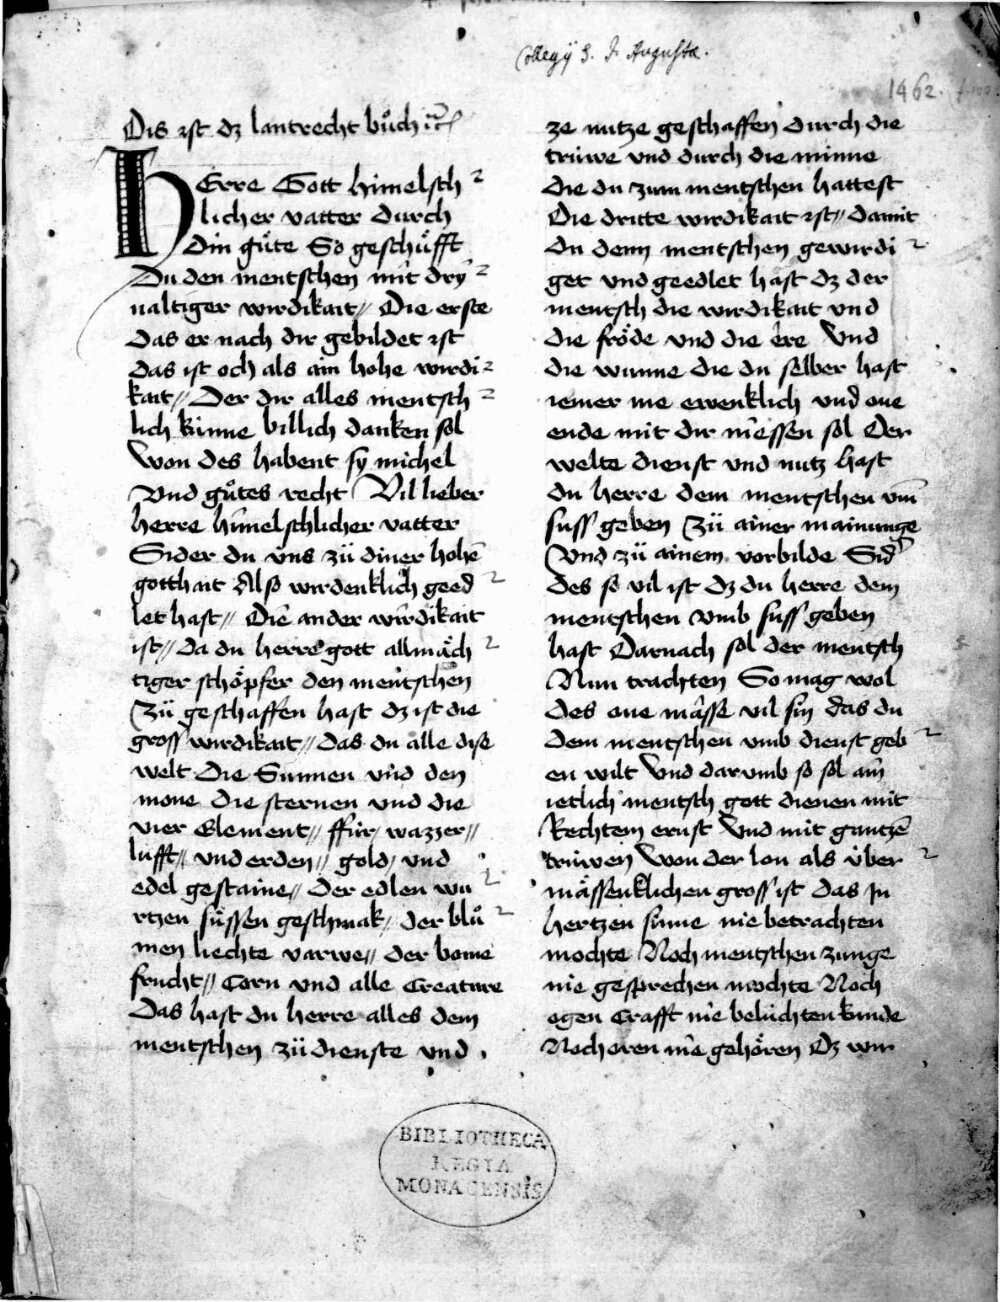 Collegij S. J. Augustæ.
1462.
Dis ist dz lantrecht bůch
HErre Gott himelsch
licher vatter durch
din gůte So geschůfft
Du den mentschen mit dry
ualtiger wirdikait// Die erste
das er nach dir gebildet ist
das ist och als ain hohe wirdi
kait// Der dir alles mentsch
lich künne billich danken sol
Won des habent sy michel
Vnd gůtes recht Vil lieber
herre himelschlicher vatter
Sider du vns zů diner hohē
gotthait Also wirdenklich geed
let hast// Die ander wirdikait
ist// da du herre gott allmäch
tiger schöpfer den mentschen
Zů geschaffen hast dz ist die
gross wirdikait// das du alle dise
welt Die Sunnen vnd den
mone die sternen vnd die
vier Element// ffür/ wazzer//
lufft// vnd erden// gold/ vnd
edel gestaine// der edlen wu
rtzen süssen geschmak// der blů
men liechte varwe// der bome
frucht// Corn vnd alle Creature
Das hast du herre alles dem
mentschen zů dienste vnd
ze nutze geschaffen durch die
trüwe vnd durch die minne
die du zum mentschen hattest
Die dritte wirdikait ist// damit
du denn mentschen gewirdi
get vnd geedlet hast dz der
mentsch die wirdikait vnd
die fröde vnd die ere Vnd
die wunne die du selber hast
iemer me ewenklich vnd one
ende mit dir niessen sol Der
welte dienst vnd nutz hast
du herre dem mentschen vm̄
suss geben Zů ainer mainunge
Vnd zů ainem vorbilde Sid
des so vil ist dz du herre dem
mentschen vmb suss geben
hast Darnach sol der mentsch
Nun trachten So mag wol
des one mässe vil sin das du
dem mentschen vmb dienst geb
en wilt Vnd darvmb so sol ain
ietlich mentsch gott dienen mit
Rechtem ernst Vnd mit gantzē
trüwen Won der lon als über
mässenklichen gross ist das In
hertzen sinne nie betrachten
mochte Noch mentschen zunge
nie gesprechen mochte Noch
ogen Crafft nie belüchten kunde
Noch oren nie gehören Dz wir
BIBLIOTHECA
REGIA
MONACENSIS